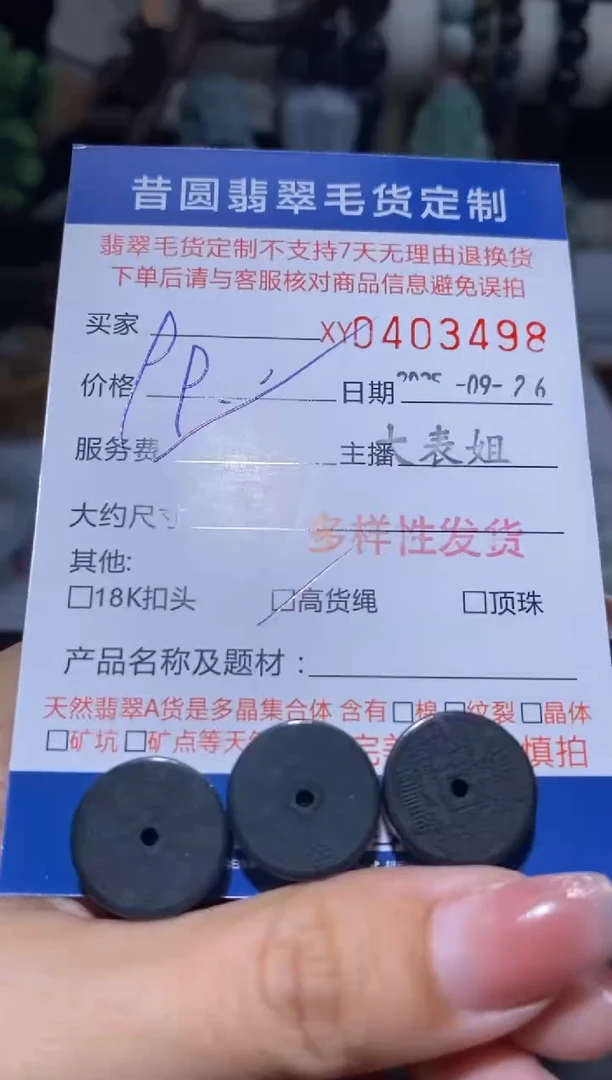 昔圆翡翠毛货定制
翡翠毛货定制不支持7天无理由退换货
下单后请与客服核对商品信息避免误拍
买家 XY0403498
价格 PP 日期 2025-09-26
服务费 主播 大表姐
大约尺寸 多样性发货
其他:
□18K扣头 □高货绳 □顶珠
产品名称及题材:
天然翡翠A货是多晶集合体 含有□棉 □纹裂 □晶体
□矿坑 □矿点等天 完 慎拍